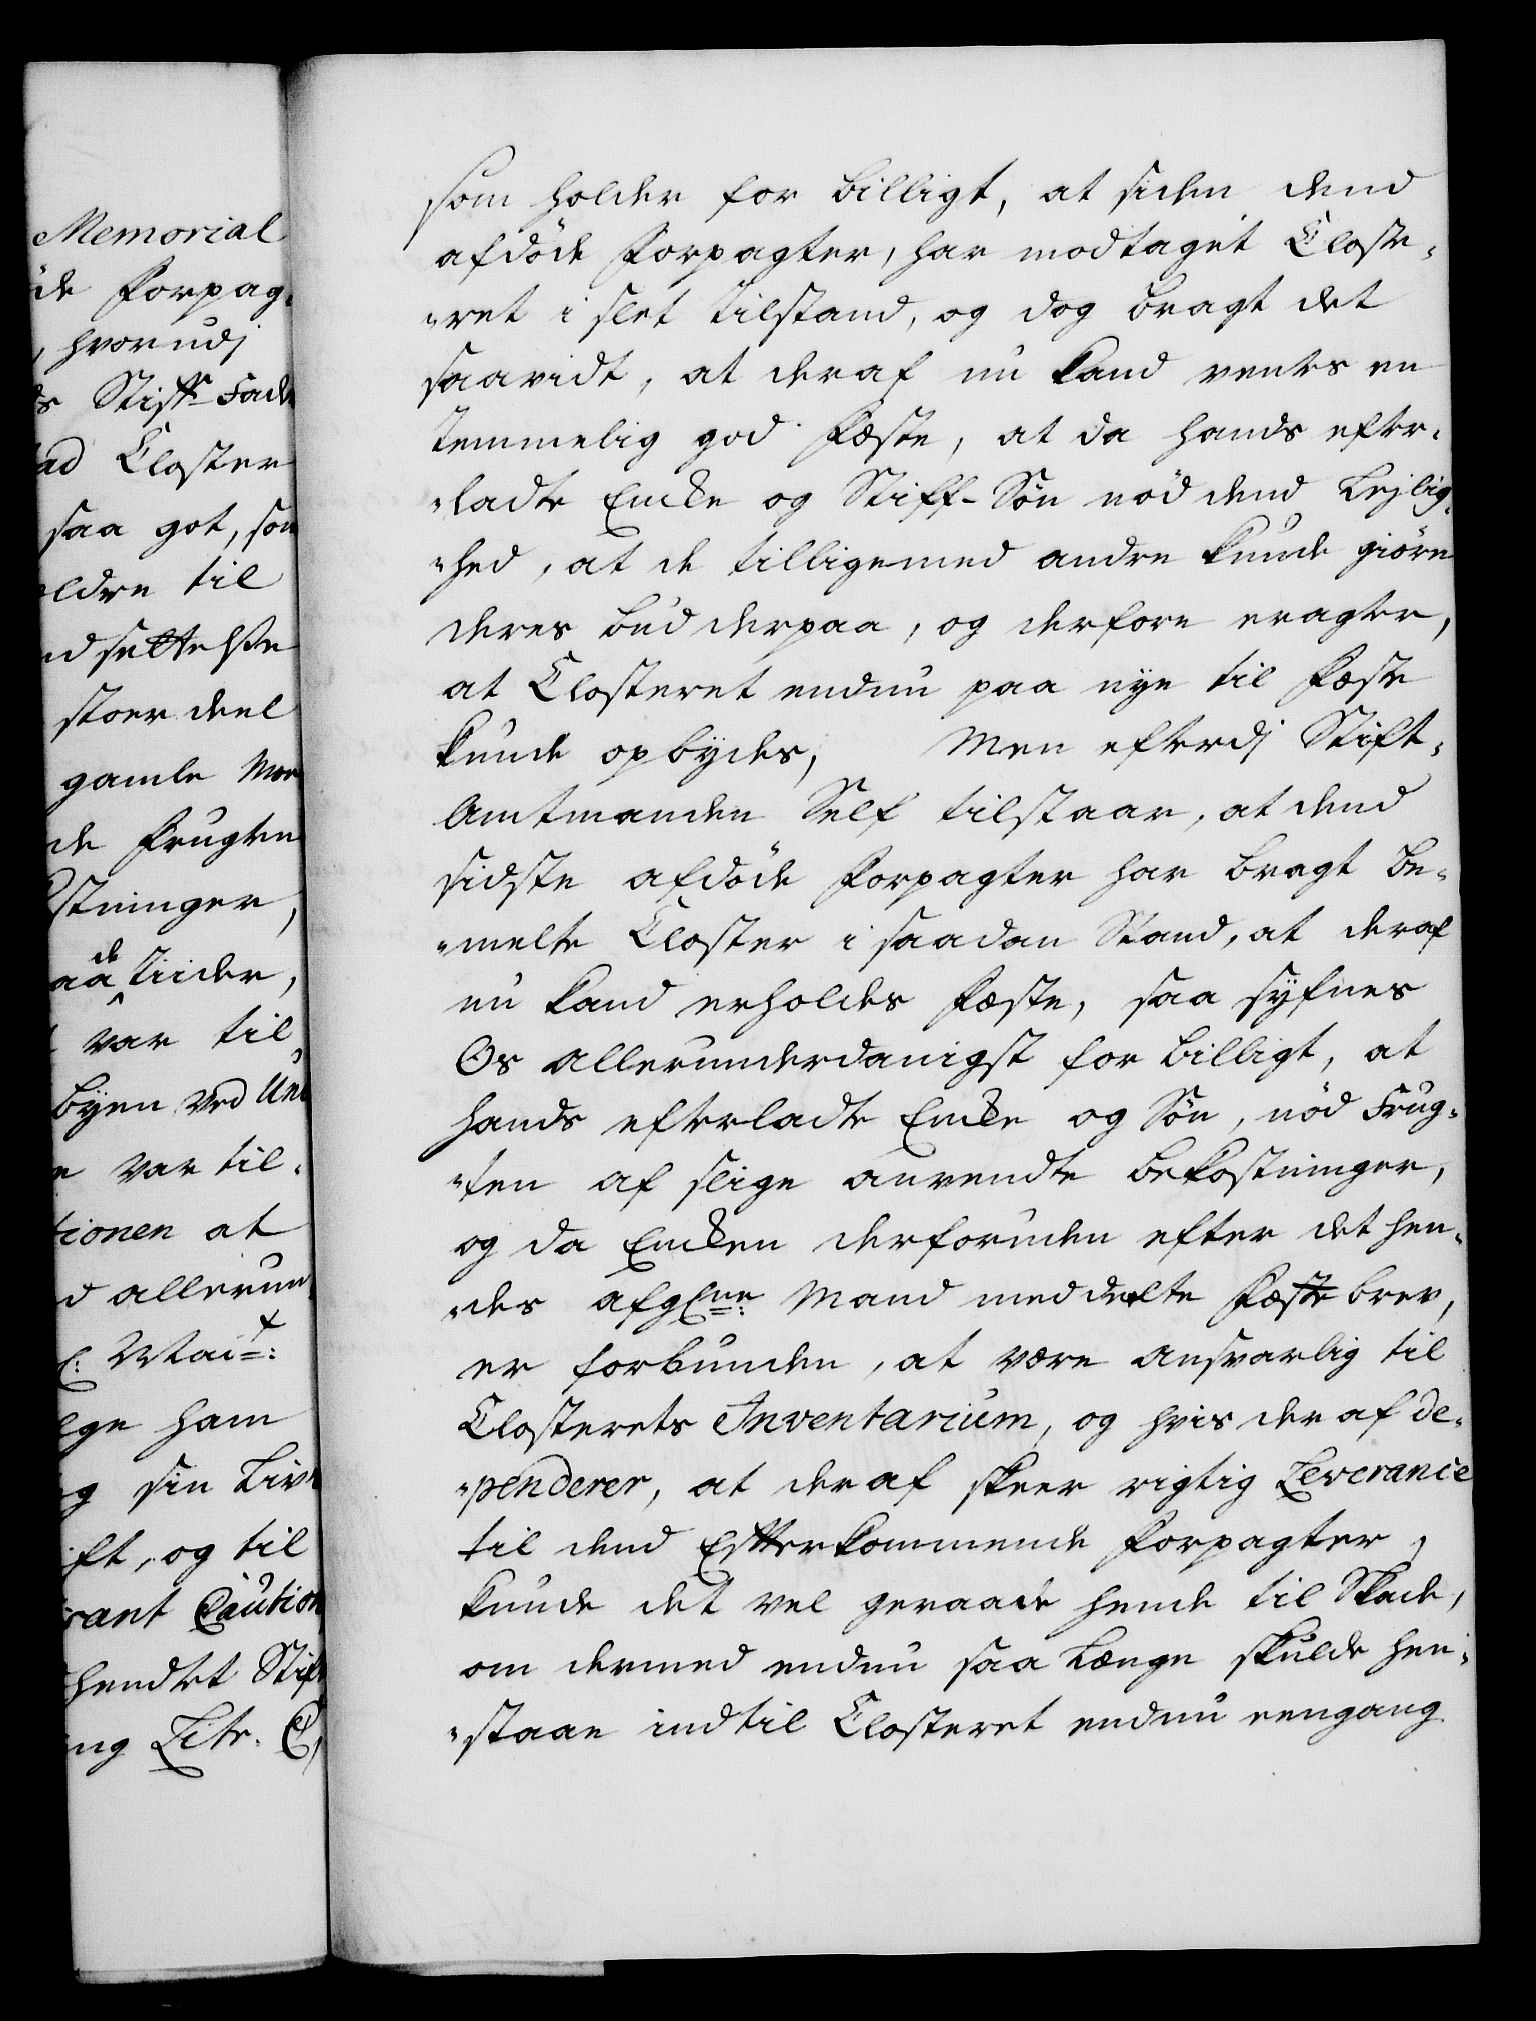 Memorial
de Forpag-
, hvorudj
ds Stiff-Fad
ad Closter
saa got, som
ældre til
nd settelse
stoer deel
gamle Mo
de frugten
stninger,
aade Tiider,
var til
byen ved Un
n var til-
tionen at
d allerun
l: May:t
ge ham
g sin Livs
ift, og til
rant Caution
hendtet Stif
ng Litr. C,
som holder for billigt, at siden dend
afdöde Forpagter, har modtaget Closte-
-ret i slet tilstand, og dog bragt det
saavidt, at deraf nu kand ventes en
temmelig god Fæste, at da hands efter-
-ladte Encke og Stiff-Sön nöd dend Lejlig-
-hed, at de tilligemed andre kunde giöre
deres bud derpaa, og derfore eragter,
at Closteret endnu paa nye til Fæste
kunde opbydes, Men efterdj Stift-
Amtmanden Self tilstaar, at dend
sidste afdöde Forpagter har bragt be-
-melte Closter i saadan Stand, at deraf
nu kand erholdes Fæste, saa syfnes
Os allerunderdanigst for billigt, at
hands efterladte Encke og Sön, nöd Frug-
-ten af slige anvendte bekostninger,
og da Encken derforuden efter det hen-
-des afgl:ne Mand meddelte Fæste brev,
er forbunden, at være ansvarlig til
Closterets Inventarium, og hvis der af de-
-penderer, at deraf skeer rigtig Leverance
til dend Efterkommende Forpagter,
kunde det vel geraade hende til Skade,
om dermed endnu saa Længe skulde hen-
-staae indtil Closteret endnu eengang